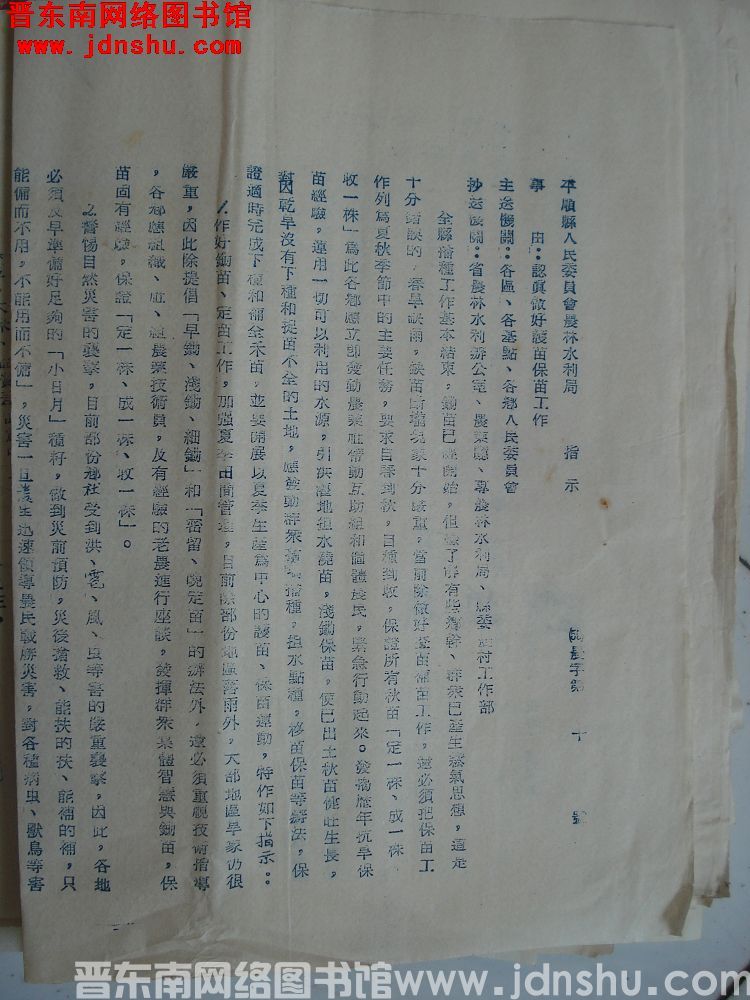 晋东南网络图书馆
www.jdnshu.com
平順縣人民委員會農林水利局 指示
農字第 十 號
事 由：認眞做好護苗保苗工作
主送機關：各區、各基點、各鄉人民委員會
抄送機關：省農林水利辦公室、農業廳、專農林水利局、縣委農村工作部
全縣播種工作基本結束，鋤苗已經開始，但據了解有些鄉幹、群衆已產生鬆氣思想，這是
十分錯誤的，春旱缺雨，缺苗斷壠現象十分嚴重，當前除做好查苗補苗工作，還必須把保苗工
作列爲夏秋季節中的主要任務，要求自春到秋，自種到收，保證所有秋苗「定一株、成一株、
收一株」爲此各鄉應立即發動農業社帶動互助組和個體農民，緊急行動起來。發揚歷年抗旱保
苗經驗，運用一切可以利用的水源，引洪灌地担水澆苗，淺鋤保苗，使已出土秋苗健旺生長，
對因乾旱沒有下種和捉苗不全的土地，應發動群衆搶墒播種，担水點種，移苗保苗等辦法，保
證適時完成下種和補全禾苗，並要開展以夏季生產爲中心的護苗、保苗運動，特作如下指示：。
1.作好鋤苗、定苗工作，加强夏季田間管理，目前除部份地區落雨外，大部地區旱象仍很
嚴重，因此除提倡「早鋤、淺鋤、細鋤」和「密留、晚定苗」的辦法外，還必須重視技術指導
，各鄉應組織、社、組農業技術員，及有經驗的老農進行座談，發揮群衆集體智慧與鋤苗，保
苗固有經驗，保證「定一株、成一株、收一株」。
2.警惕自然災害的襲擊，目前部份鄉社受到洪、雹、風、虫等害的嚴重襲擊，因此，各地
必須及早準備好足夠的「小日月」種籽，做到災前預防，災後搶救、能扶的扶、能補的補，只
能備而不用，不能用而不備」，災害一旦發生迅速領導農民戰勝災害，對各種病虫、獸鳥等害
晋东南网络图书馆www.jdnshu.com